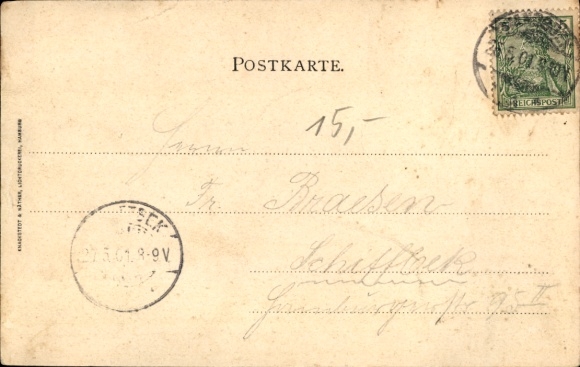 POSTKARTE.
REICHSPOST
15,-
Herrn
Fr. Braesen
Schiffbek
II
27.5.01.8-9V.
KNACKSTEDT & NÄTHER, LICHTDRUCKEREI, HAMBURG